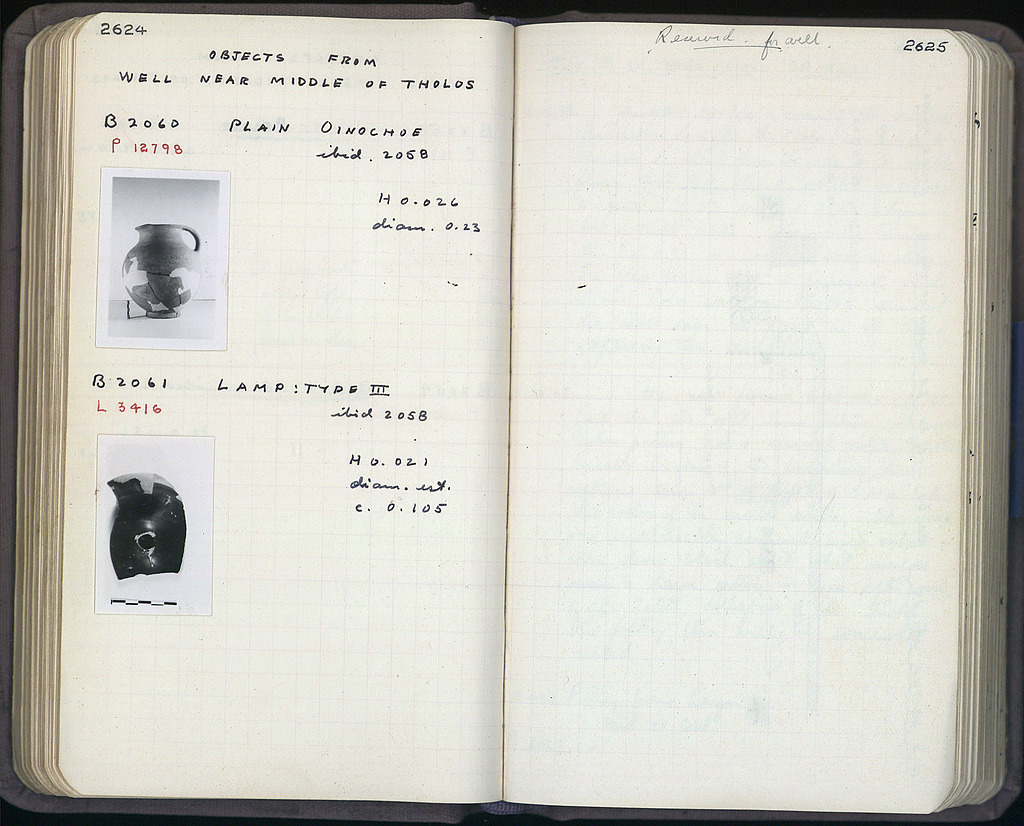 2624
OBJECTS FROM
WELL NEAR MIDDLE OF THOLOS
B 2060 PLAIN OINOCHOE
P 12798 ibid. 2058
H 0.026
diam. 0.23
B 2061 LAMP: TYPE III
L 3416 ibid 2058
H 0.021
diam. est.
c. 0.105
Reserved. for well.
2625